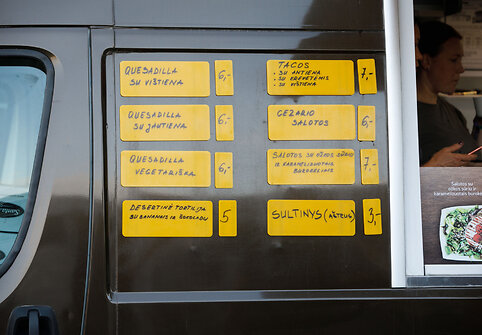 QUESADILLA
SU VIŠTIENA
6,-
QUESADILLA
SU JAUTIENA
6,-
QUESADILLA
VEGETARIŠKA
6,-
DESERTINĖ TORTILIJA
SU BANANAIS IR ŠOKOLADU
5
TACOS
• SU ANTIENA
• SU KREVETĖMIS
• SU VIŠTIENA
7,-
CEZARIO
SALOTOS
6,-
SALOTOS SU OŽKOS SŪRIO
IR KARAMELIZUOTAIS
BUROKĖLIAIS
7,-
SULTINYS (AŠTRUS)
3,-
Salotos su
ožkos sūriu ir